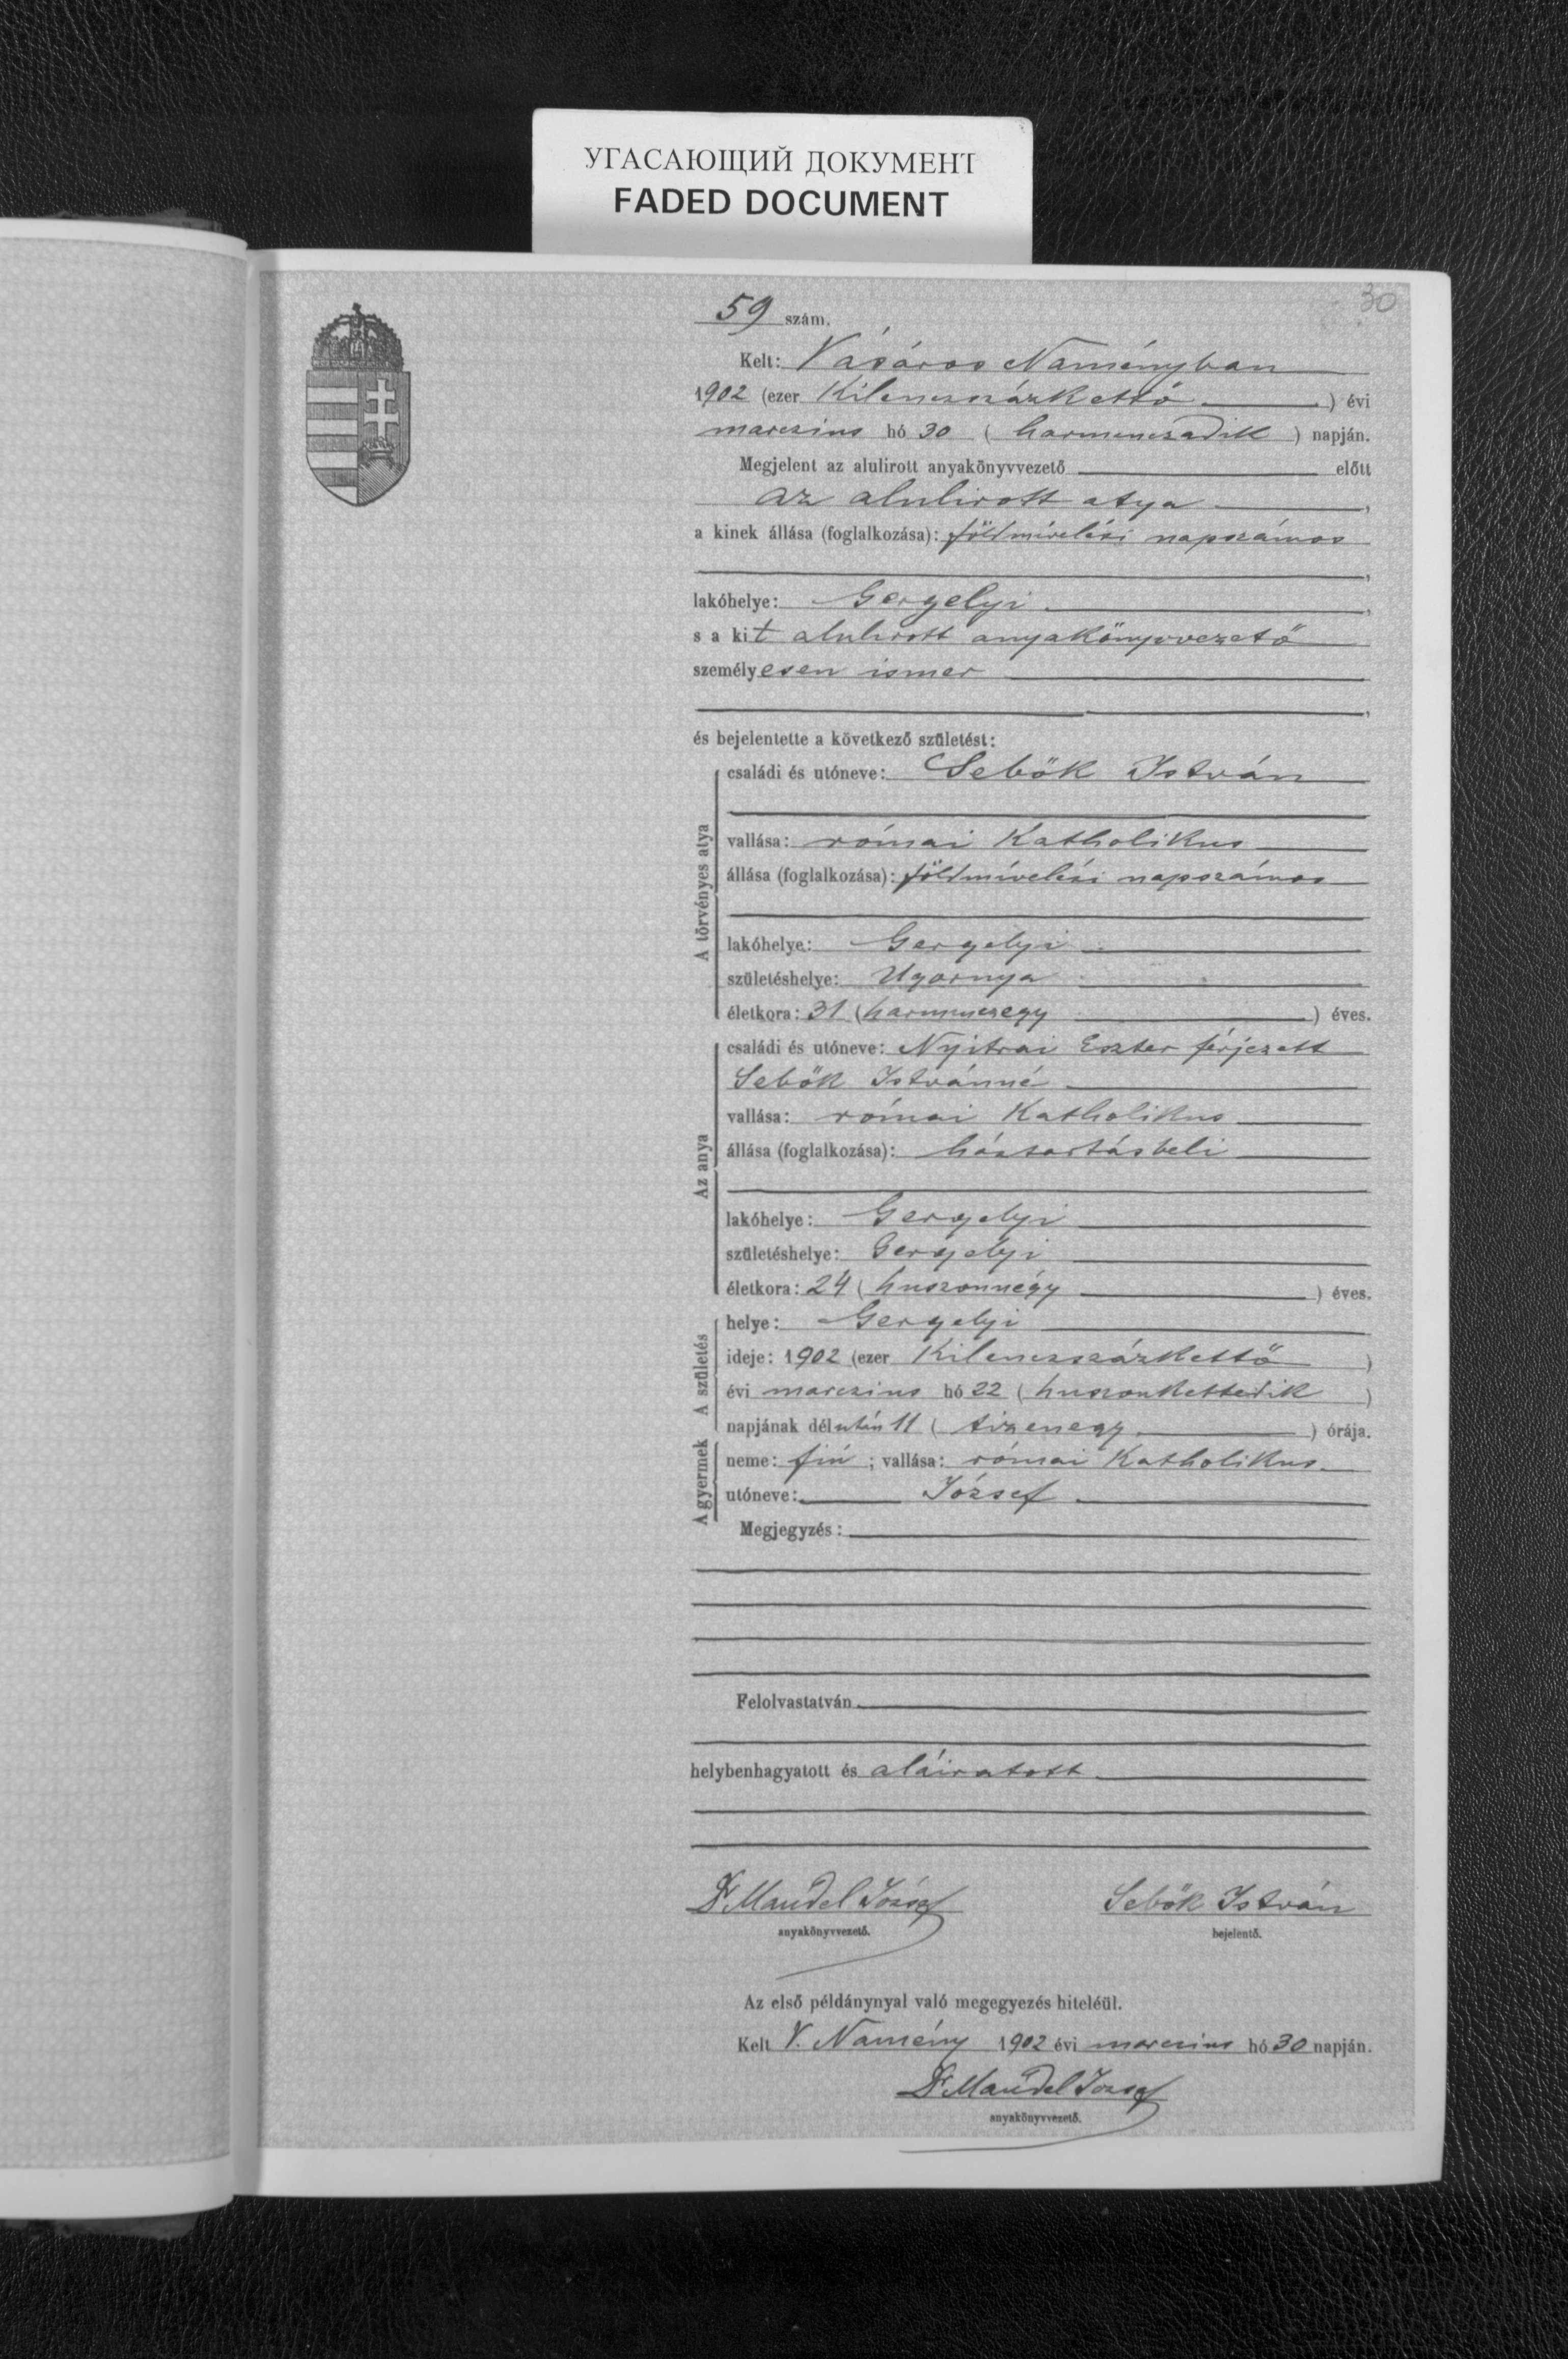 УГАСАЮЩИЙ ДОКУМЕНТ
FADED DOCUMENT
30
59 szám.
Kelt: Vásáros Naményban
1902 (ezer Kilenczszázkettő) évi
marczius hó 30 (harminczadik) napján.
Megjelent az alulirott anyakönyvvezető előtt
az alulirott atya,
a kinek állása (foglalkozása): földmivelési napszámos
,
lakóhelye: Gergelyi,
s a kit alulirott anyakönyvvezető
személyesen ismer
,
és bejelentette a következő születést:
A törvényes atya
családi és utóneve: Sebők István
vallása: római Katholikus
állása (foglalkozása): földmívelési napszámos
lakóhelye: Gergelyi
születéshelye: Ugornya
életkora: 31 (harminczegy) éves.
Az anya
családi és utóneve: Nyitrai Eszter férjezett
Sebők Istvánné
vallása: római Katholikus
állása (foglalkozása): háztartásbeli
lakóhelye: Gergelyi
születéshelye: Gergelyi
életkora: 24 (huszonnégy) éves.
A születés
helye: Gergelyi
ideje: 1902 (ezer Kilenczszázkettő)
évi marczius hó 22 (huszonkettedik)
napjának délután 11 (tizenegy) órája.
A gyermek
neme: fiú; vallása: római Katholikus
utóneve: József
Megjegyzés:
Felolvastatván
helybenhagyatott és aláiratott
Dr Mandel József Sebők István
anyakönyvvezető. bejelentő.
Az első példánynyal való megegyezés hiteléül.
Kelt V. Namény 1902 évi marczius hó 30 napján.
Dr Mandel József
anyakönyvvezető.